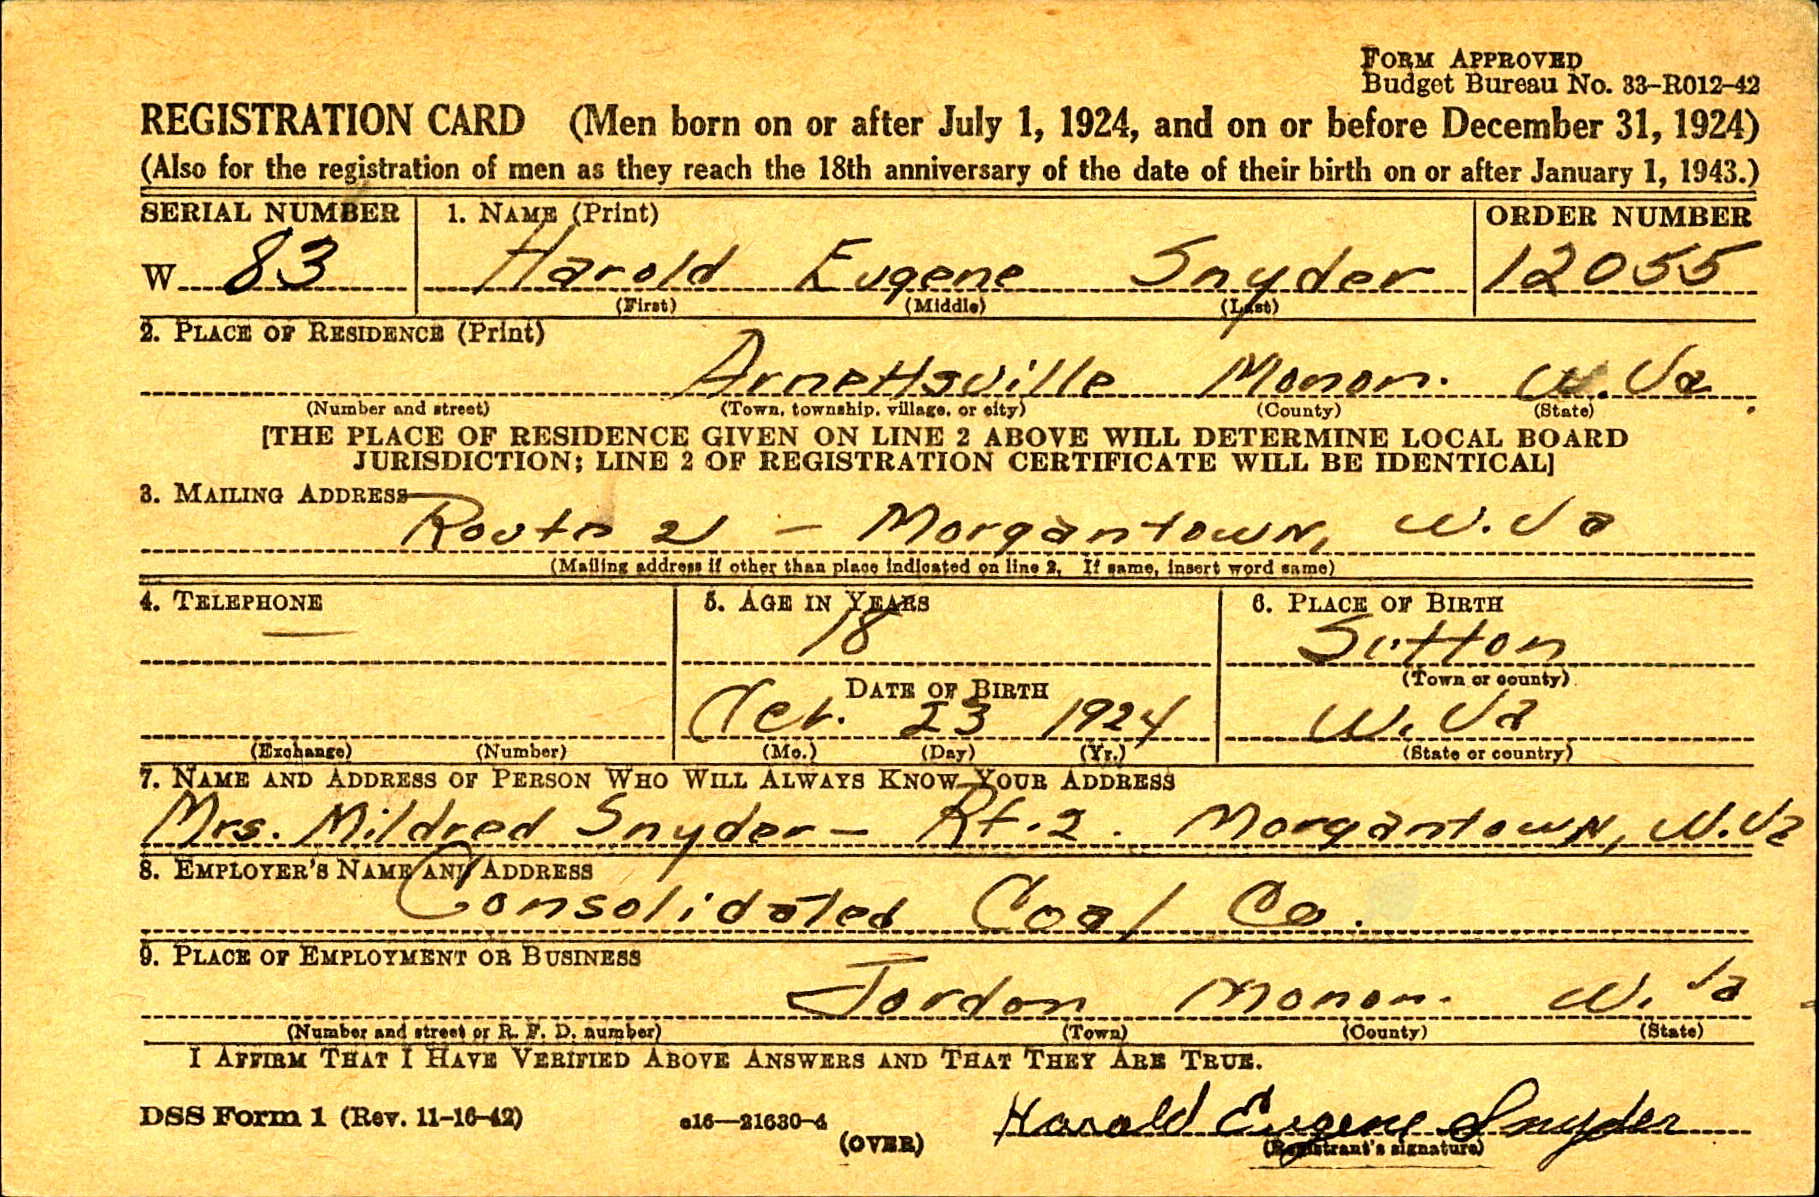 FORM APPROVED
Budget Bureau No. 33-R012-42
REGISTRATION CARD (Men born on or after July 1, 1924, and on or before December 31, 1924)
(Also for the registration of men as they reach the 18th anniversary of the date of their birth on or after January 1, 1943.)
SERIAL NUMBER 1. NAME (Print) ORDER NUMBER
W 83 Harold Eugene Snyder 12055
(First) (Middle) (Last)
2. PLACE OF RESIDENCE (Print)
Arnettsville Monon. W. Va.
(Number and street) (Town, township, village, or city) (County) (State)
[THE PLACE OF RESIDENCE GIVEN ON LINE 2 ABOVE WILL DETERMINE LOCAL BOARD
JURISDICTION; LINE 2 OF REGISTRATION CERTIFICATE WILL BE IDENTICAL]
3. MAILING ADDRESS
Route 2 - Morgantown, W. Va
(Mailing address if other than place indicated on line 2. If same, insert word same)
4. TELEPHONE 5. AGE IN YEARS 6. PLACE OF BIRTH
— 18 Sutton
(Town or county)
DATE OF BIRTH
Oct. 23 1924 W. Va
(Exchange) (Number) (Mo.) (Day) (Yr.) (State or country)
7. NAME AND ADDRESS OF PERSON WHO WILL ALWAYS KNOW YOUR ADDRESS
Mrs. Mildred Snyder - Rt. 2. Morgantown, W. Va
8. EMPLOYER'S NAME AND ADDRESS
Consolidated Coal Co.
9. PLACE OF EMPLOYMENT OR BUSINESS
Jordon Monon. W. Va
(Number and street or R. F. D. number) (Town) (County) (State)
I AFFIRM THAT I HAVE VERIFIED ABOVE ANSWERS AND THAT THEY ARE TRUE.
DSS Form 1 (Rev. 11-16-42) c16—21630-4 (OVER) Harold Eugene Snyder
(Registrant's signature)